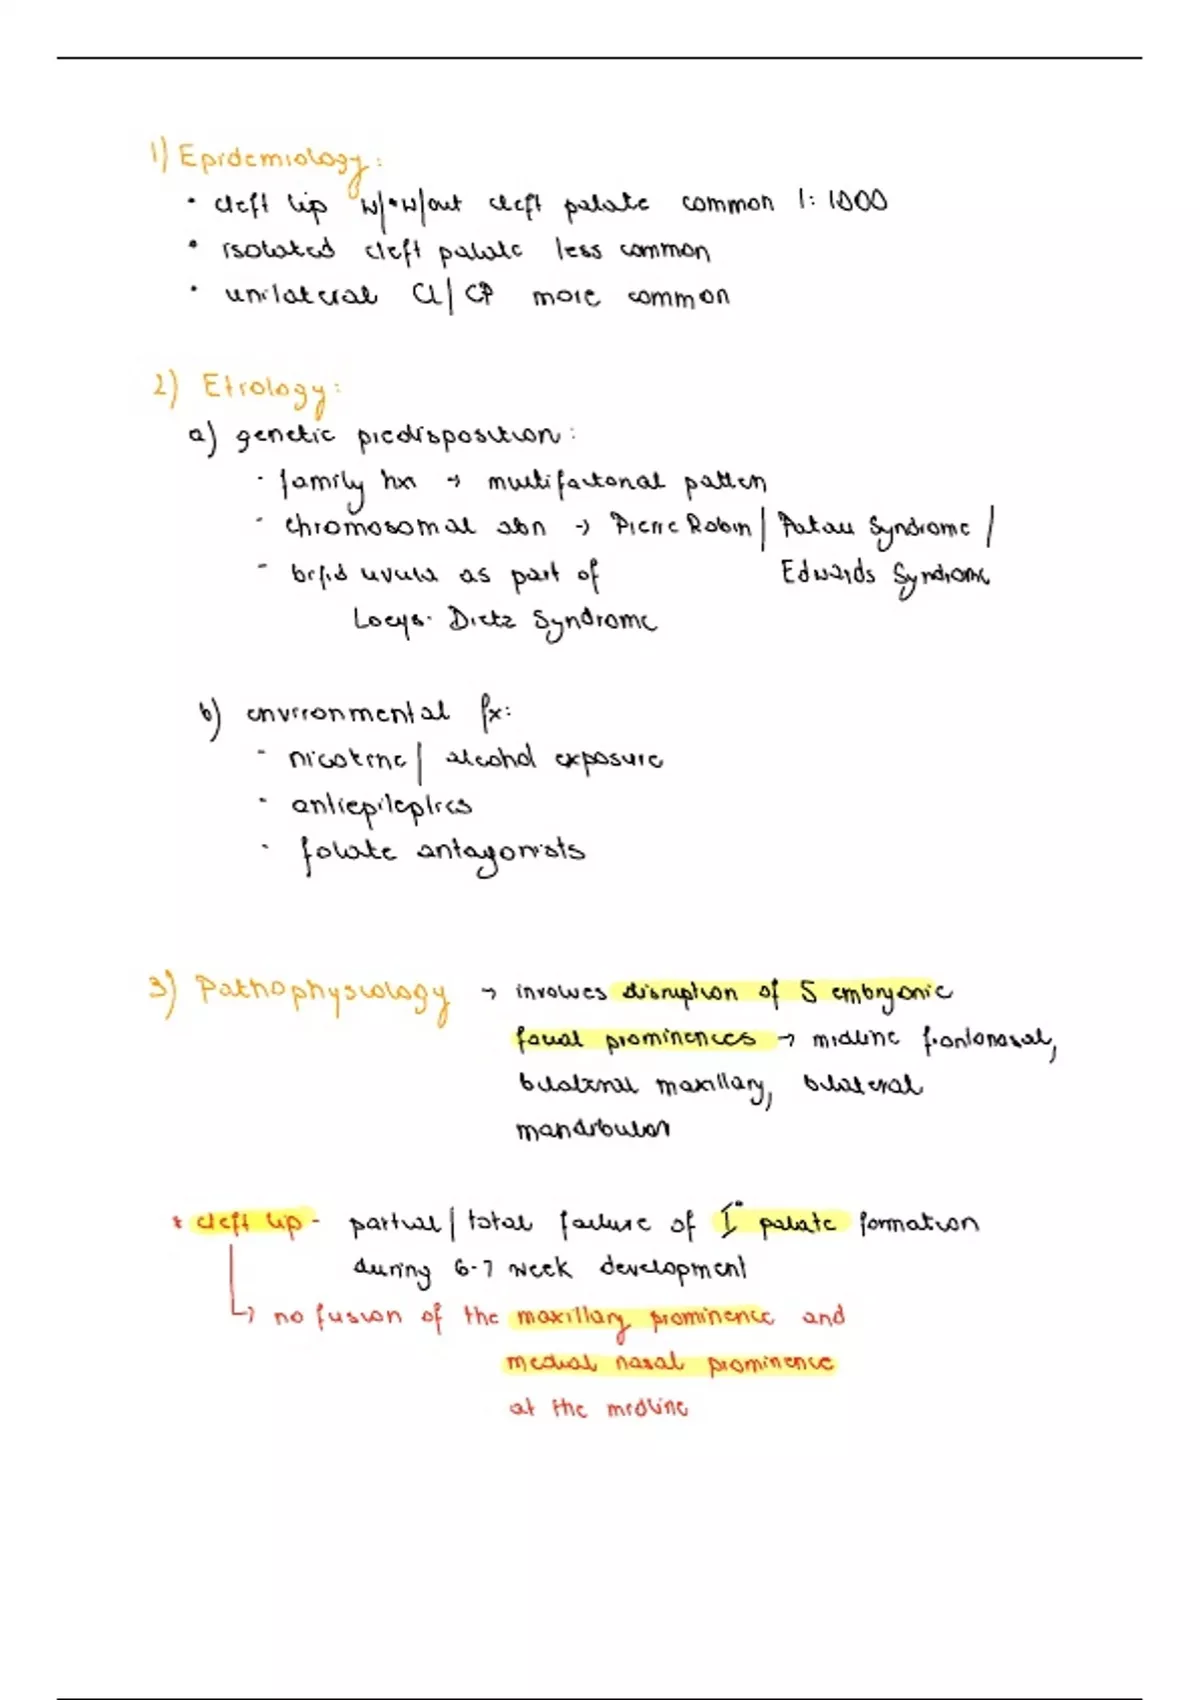 1) Epidemiology:
• cleft lip w/•w/out cleft palate common 1:1000
• isolated cleft palate less common
• unilateral CL/CP more common
2) Etiology:
a) genetic predisposition:
- family hxn → multifactorial pattern
- chromosomal abn → Pierre Robin / Patau Syndrome /
Edwards Syndrome
- bifid uvula as part of
Loeys-Dietz Syndrome
b) environmental fx:
- nicotine / alcohol exposure
- antiepileptics
- folate antagonists
3) Pathophysiology → involves disruption of 5 embryonic
facial prominences → midline frontonasal,
bilateral maxillary, bilateral
mandibular
* cleft lip - partial / total failure of I° palate formation
during 6-7 week development
↳ no fusion of the maxillary prominence and
medial nasal prominence
at the midline